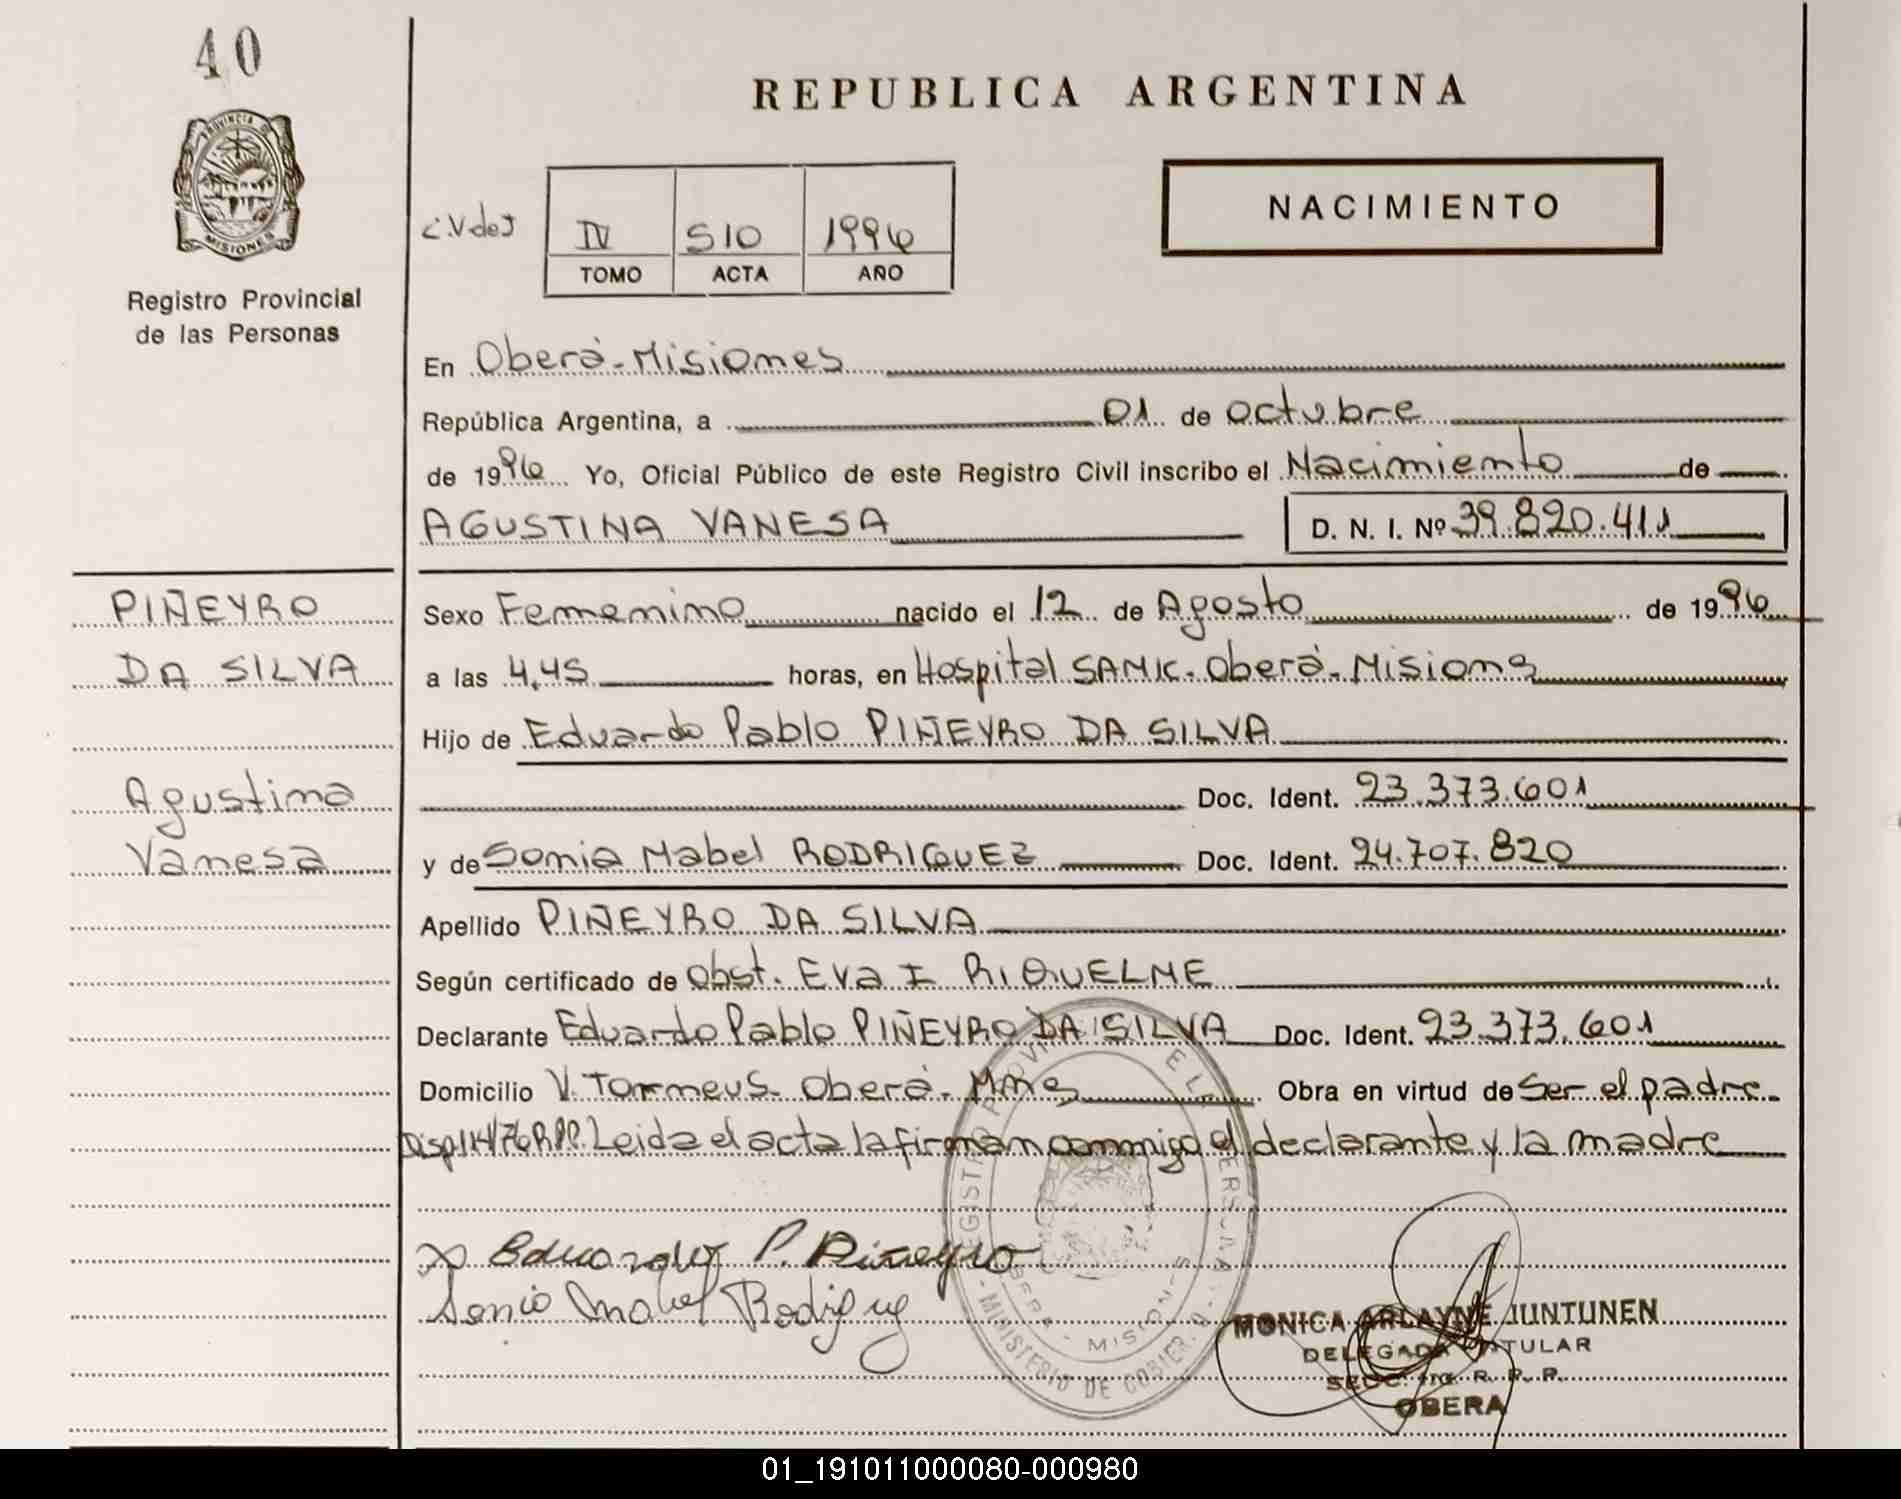 40
PROVINCIA DE
MISIONES
Registro Provincial
de las Personas
REPUBLICA ARGENTINA
NACIMIENTO
IV 510 1996
TOMO ACTA AÑO
En Oberá-Misiones
República Argentina, a 01 de octubre
de 1996 Yo, Oficial Público de este Registro Civil inscribo el Nacimiento de
AGUSTINA VANESA D. N. I. Nº 39.820.411
PIÑEYRO
DA SILVA
Agustina
Vanesa
Sexo Femenino nacido el 12 de Agosto de 1996
a las 4,45 horas, en Hospital SAMIC. Oberá-Misiones
Hijo de Eduardo Pablo PIÑEYRO DA SILVA
Doc. Ident. 23.373.601
y de Sonia Mabel RODRIGUEZ Doc. Ident. 24.707.820
Apellido PIÑEYRO DA SILVA
Según certificado de Obst. Eva I RIQUELME
Declarante Eduardo Pablo PIÑEYRO DA SILVA Doc. Ident. 23.373.601
Domicilio V. Torneus - Oberá - Mnes Obra en virtud de Ser el padre.
Disp 114/76 R.P.P. Leida el acta la firman conmigo el declarante y la madre
Eduardo P. Piñeyro
Sonia Mabel Rodriguez
MISIONES
MINISTERIO DE GOBIER
MONICA ARLAYNE JUNTUNEN
DELEGADA TITULAR
SECC. R. P. P.
OBERA
01_191011000080-000980